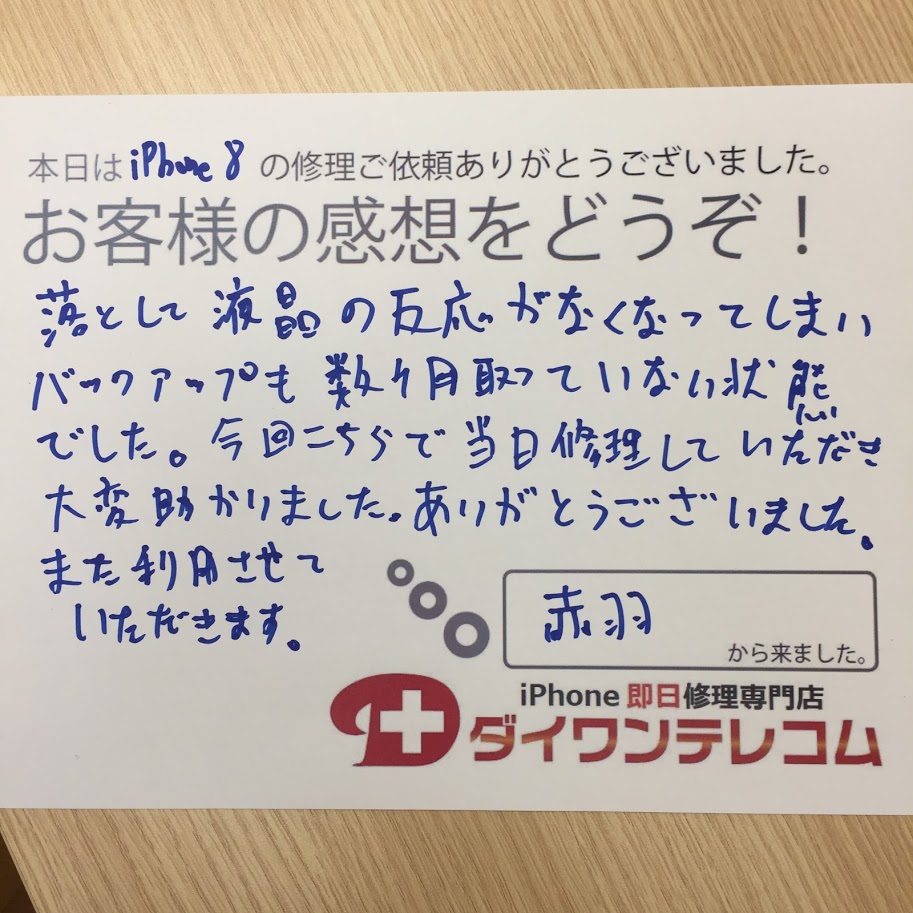 本日は iPhone 8 の修理ご依頼ありがとうございました。
お客様の感想をどうぞ！
落として液晶の反応がなくなってしまい
バックアップも数ケ月取っていない状態
でした。今回こちらで当日修理していただき
大変助かりました。ありがとうございました。
また利用させて
いただきます。
赤羽
から来ました。
iPhone 即日修理専門店
ダイワンテレコム